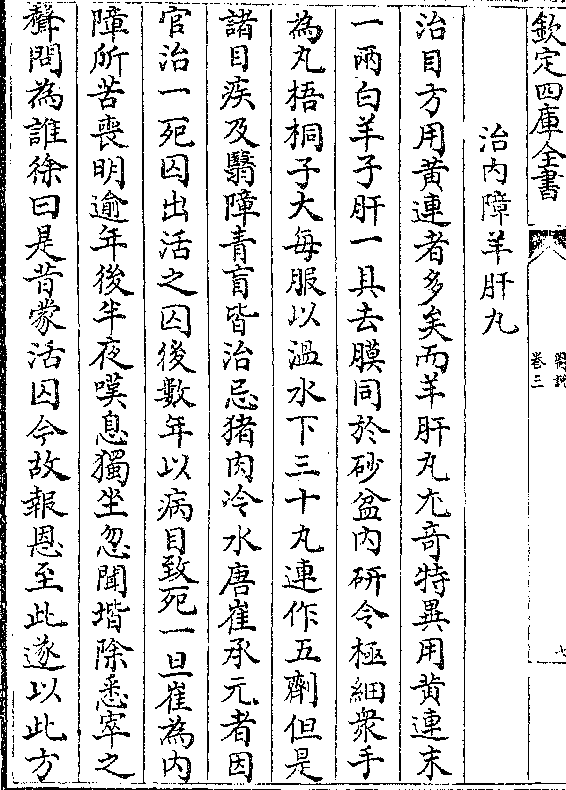 欽定四庫全書
卷三
治内障羊肝丸
治目方用黄連者多矣而羊肝丸尤竒特異用黄連末
一兩白羊子肝一具去膜同於砂盆内研令極細衆手
為丸梧桐子大每服以溫水下三十丸連作五劑但是
諸目疾及翳障青盲皆治忌猪肉冷水唐崔承元者因
官治一死囚出活之囚後數年以病目致死一旦崔為内
障所苦喪明逾年後半夜嘆息獨坐忽聞堦除悉窣之
聲問為誰徐曰是昔蒙活囚今故報恩至此遂以此方